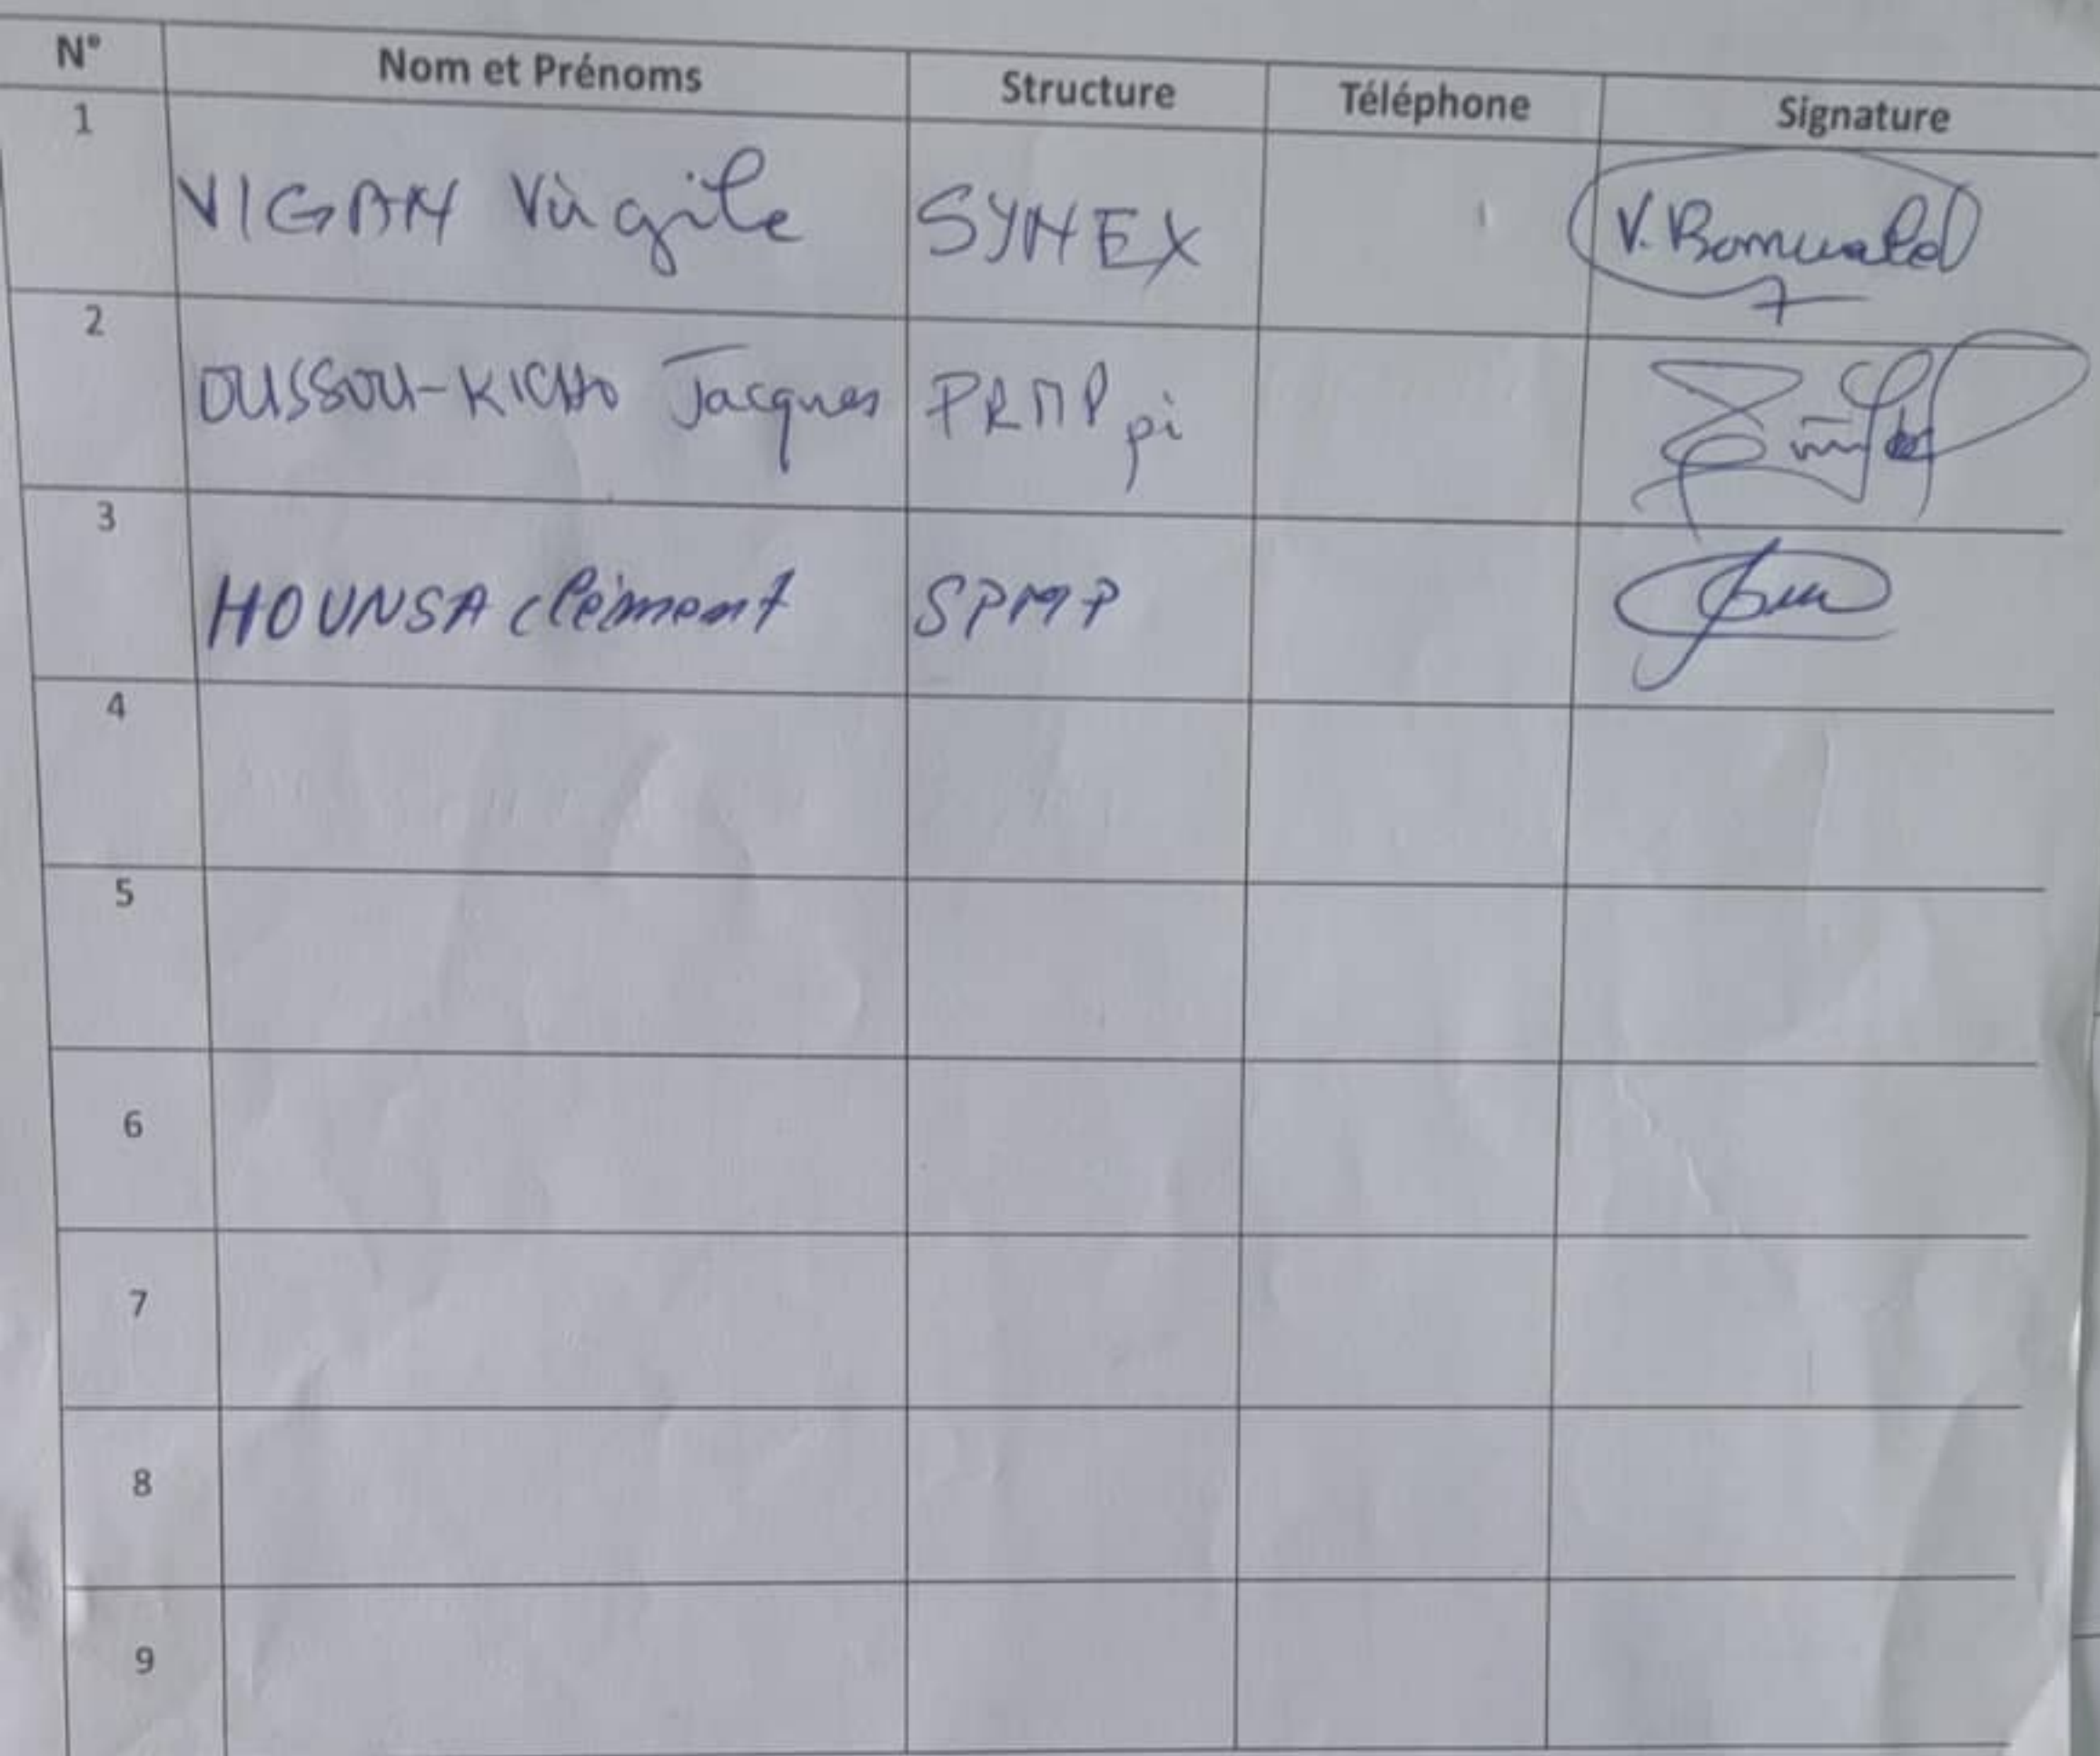 N° Nom et Prénoms Structure Téléphone Signature
1 VIGAN Virgile SYNEX V. Romuald
2 OUSSOU-KICHO Jacques PRMP pi
3 HOUNSA Clément SPMP
4
5
6
7
8
9